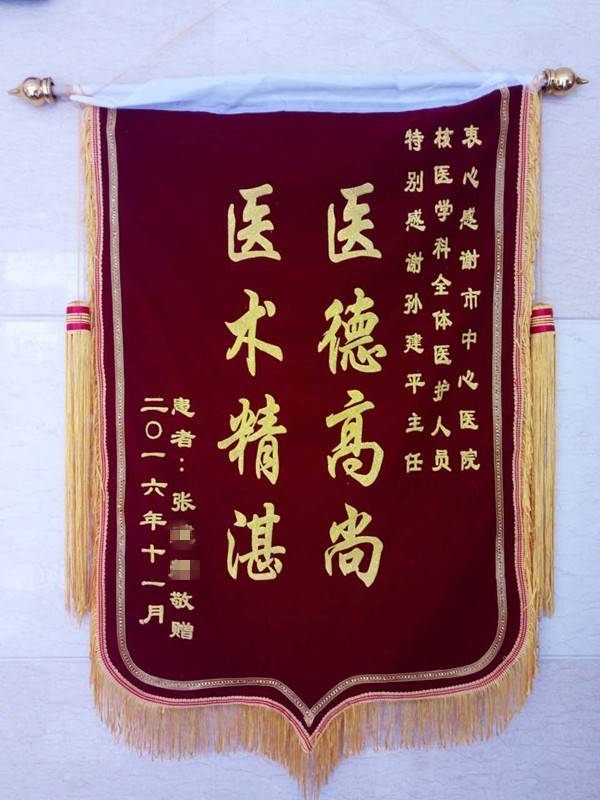 衷心感谢市中心医院
核医学科全体医护人员
特别感谢孙建平主任
医德高尚
医术精湛
患者：张敬赠
二〇一六年十一月